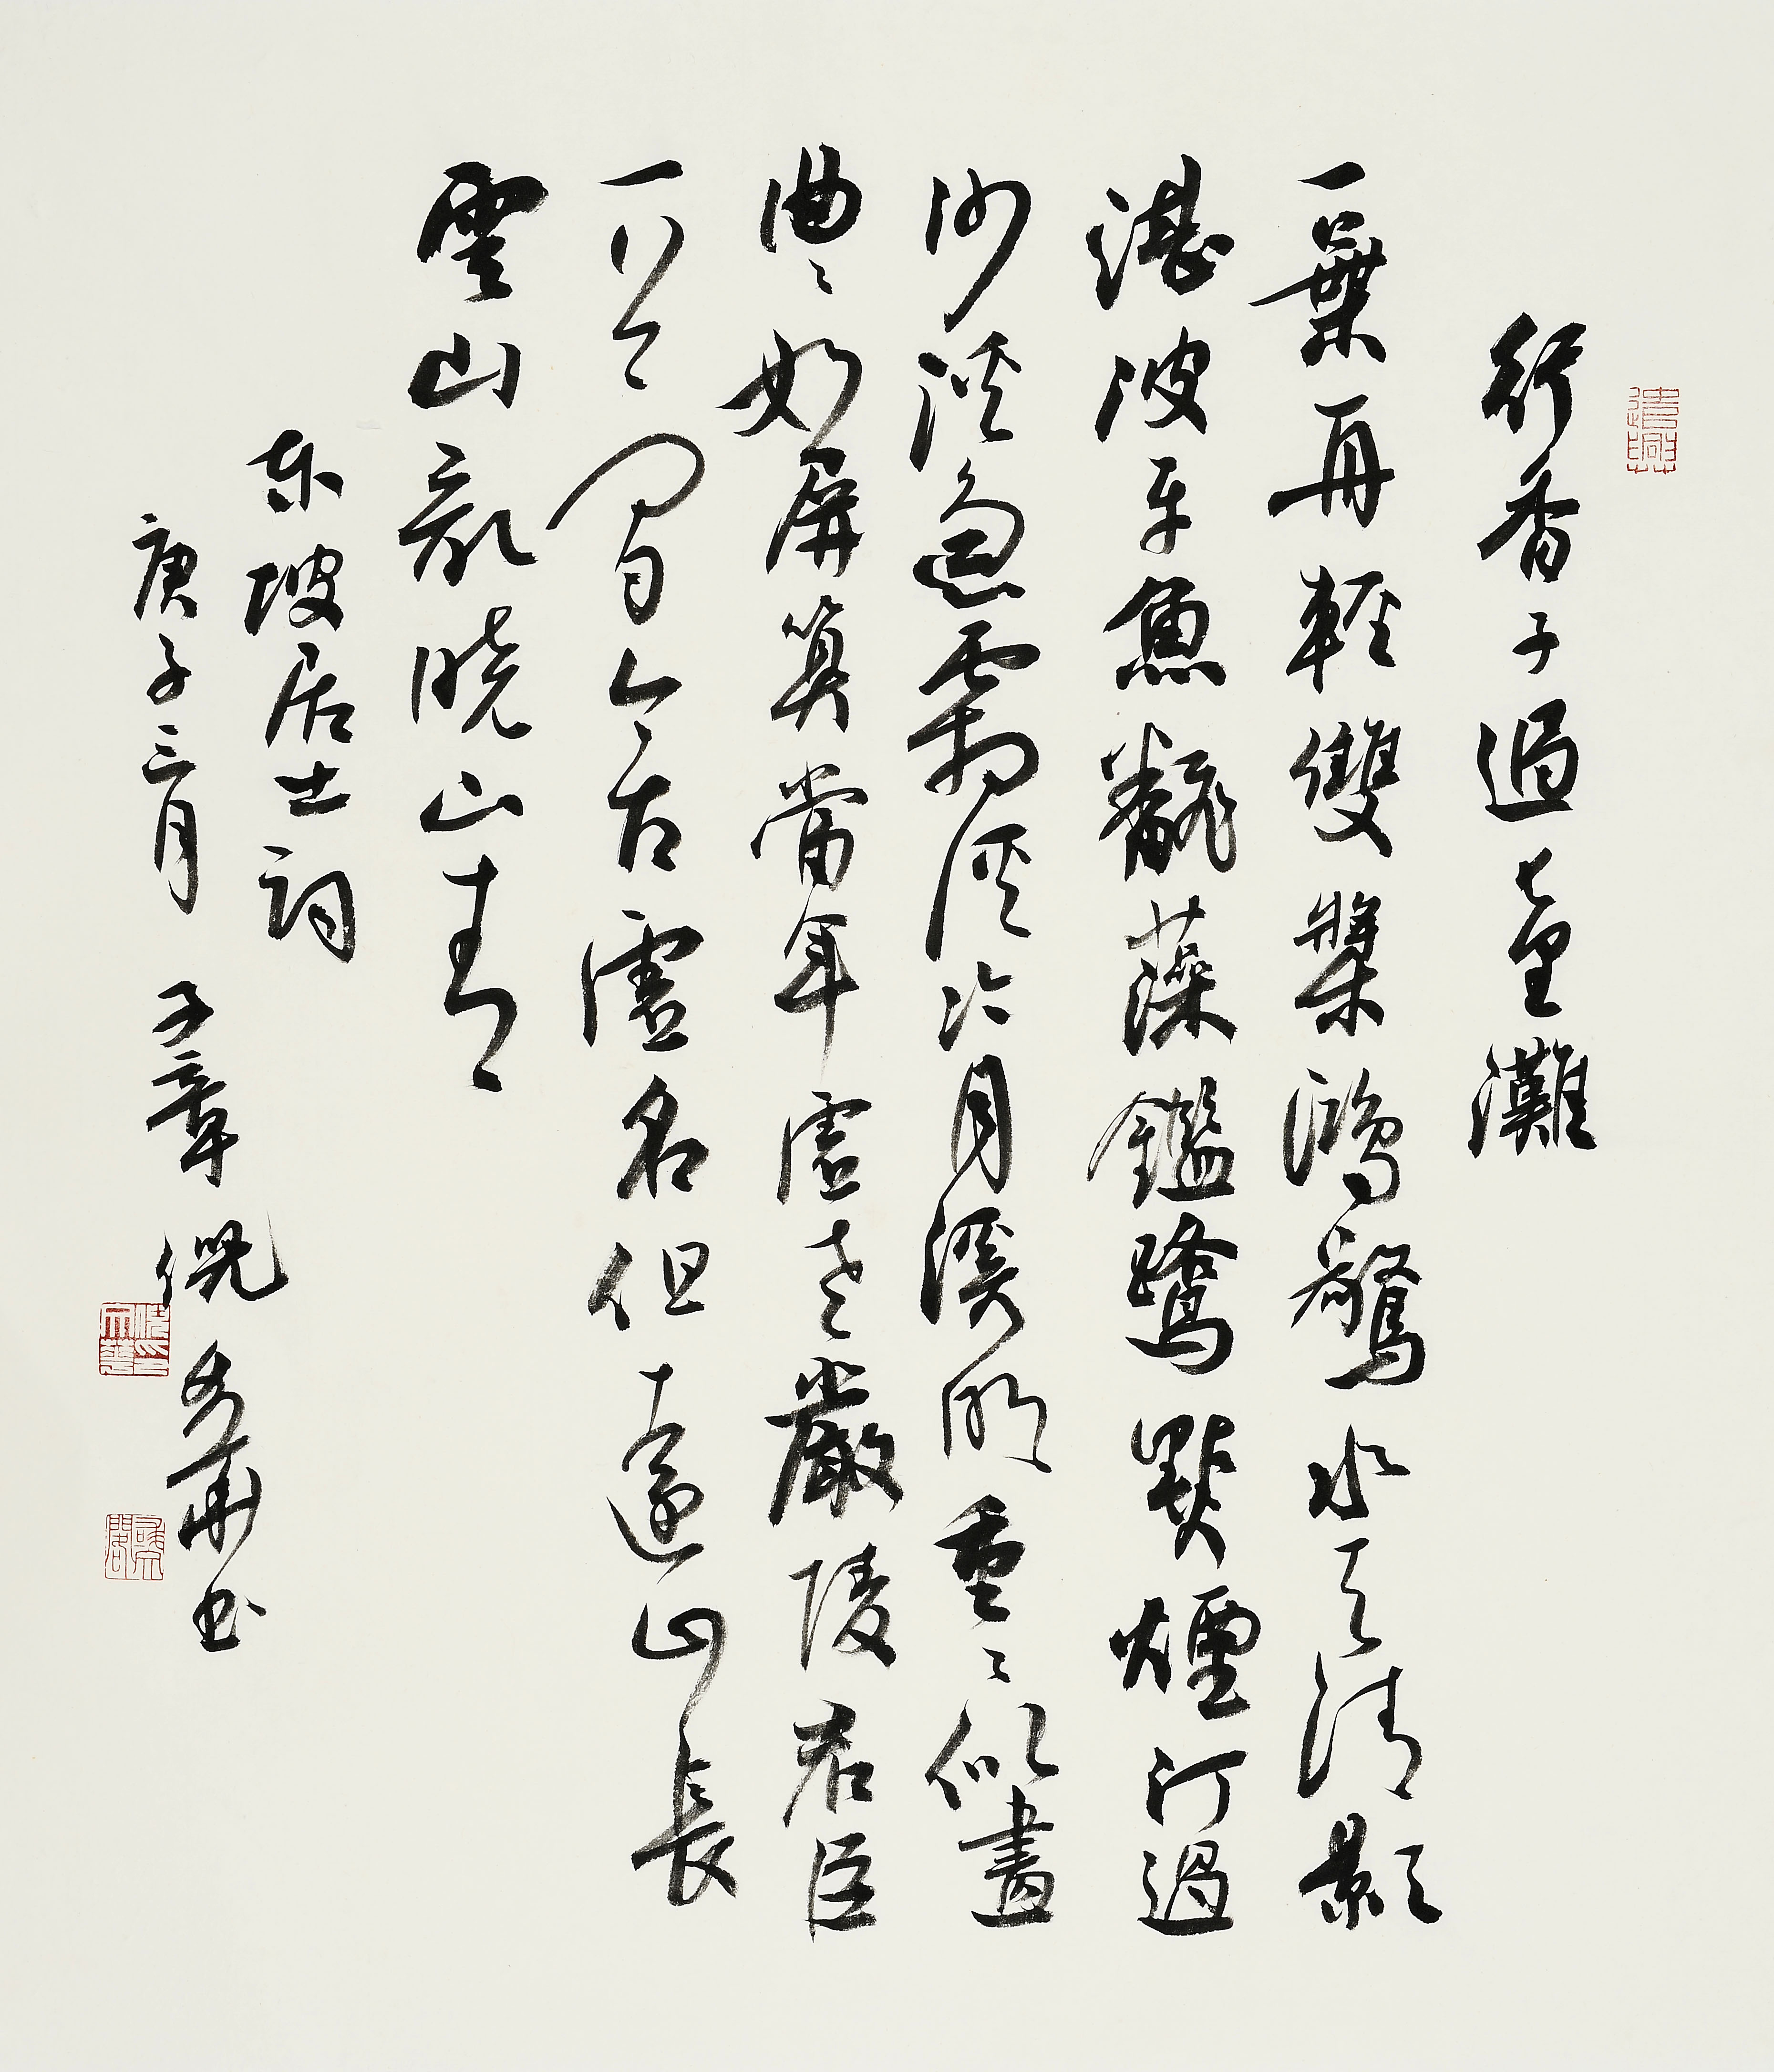 遣興
行香子過七里灘
一葉舟輕雙槳鴻驚水天清影
湛波平魚翻藻鑑鷺點煙汀過
沙溪急霜溪冷月溪明重〻似畫
曲〻如屏算當年虛老嚴陵君臣
一夢今古虛名但遠山長
雲山亂曉山青
東坡居士詞
庚子三月 子章 倪華书